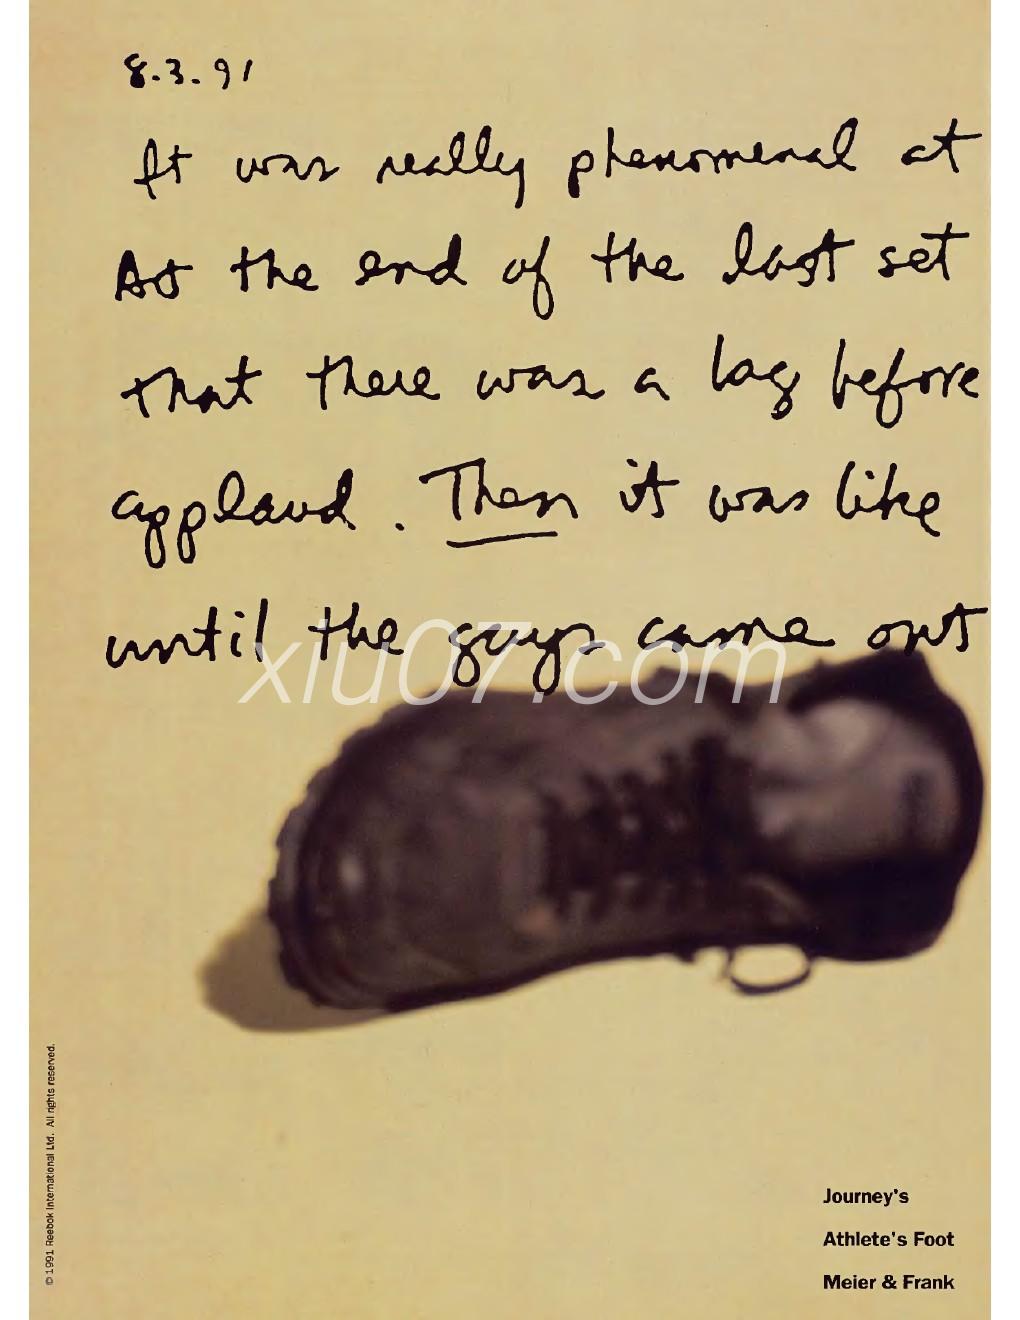 8.3.91
It was really phenomenal at
As the end of the last set
that there was a lag before
applaud. Then it was like
until the guys came out
xiu07.com
© 1991 Reebok International Ltd. All rights reserved.
Journey's
Athlete's Foot
Meier & Frank